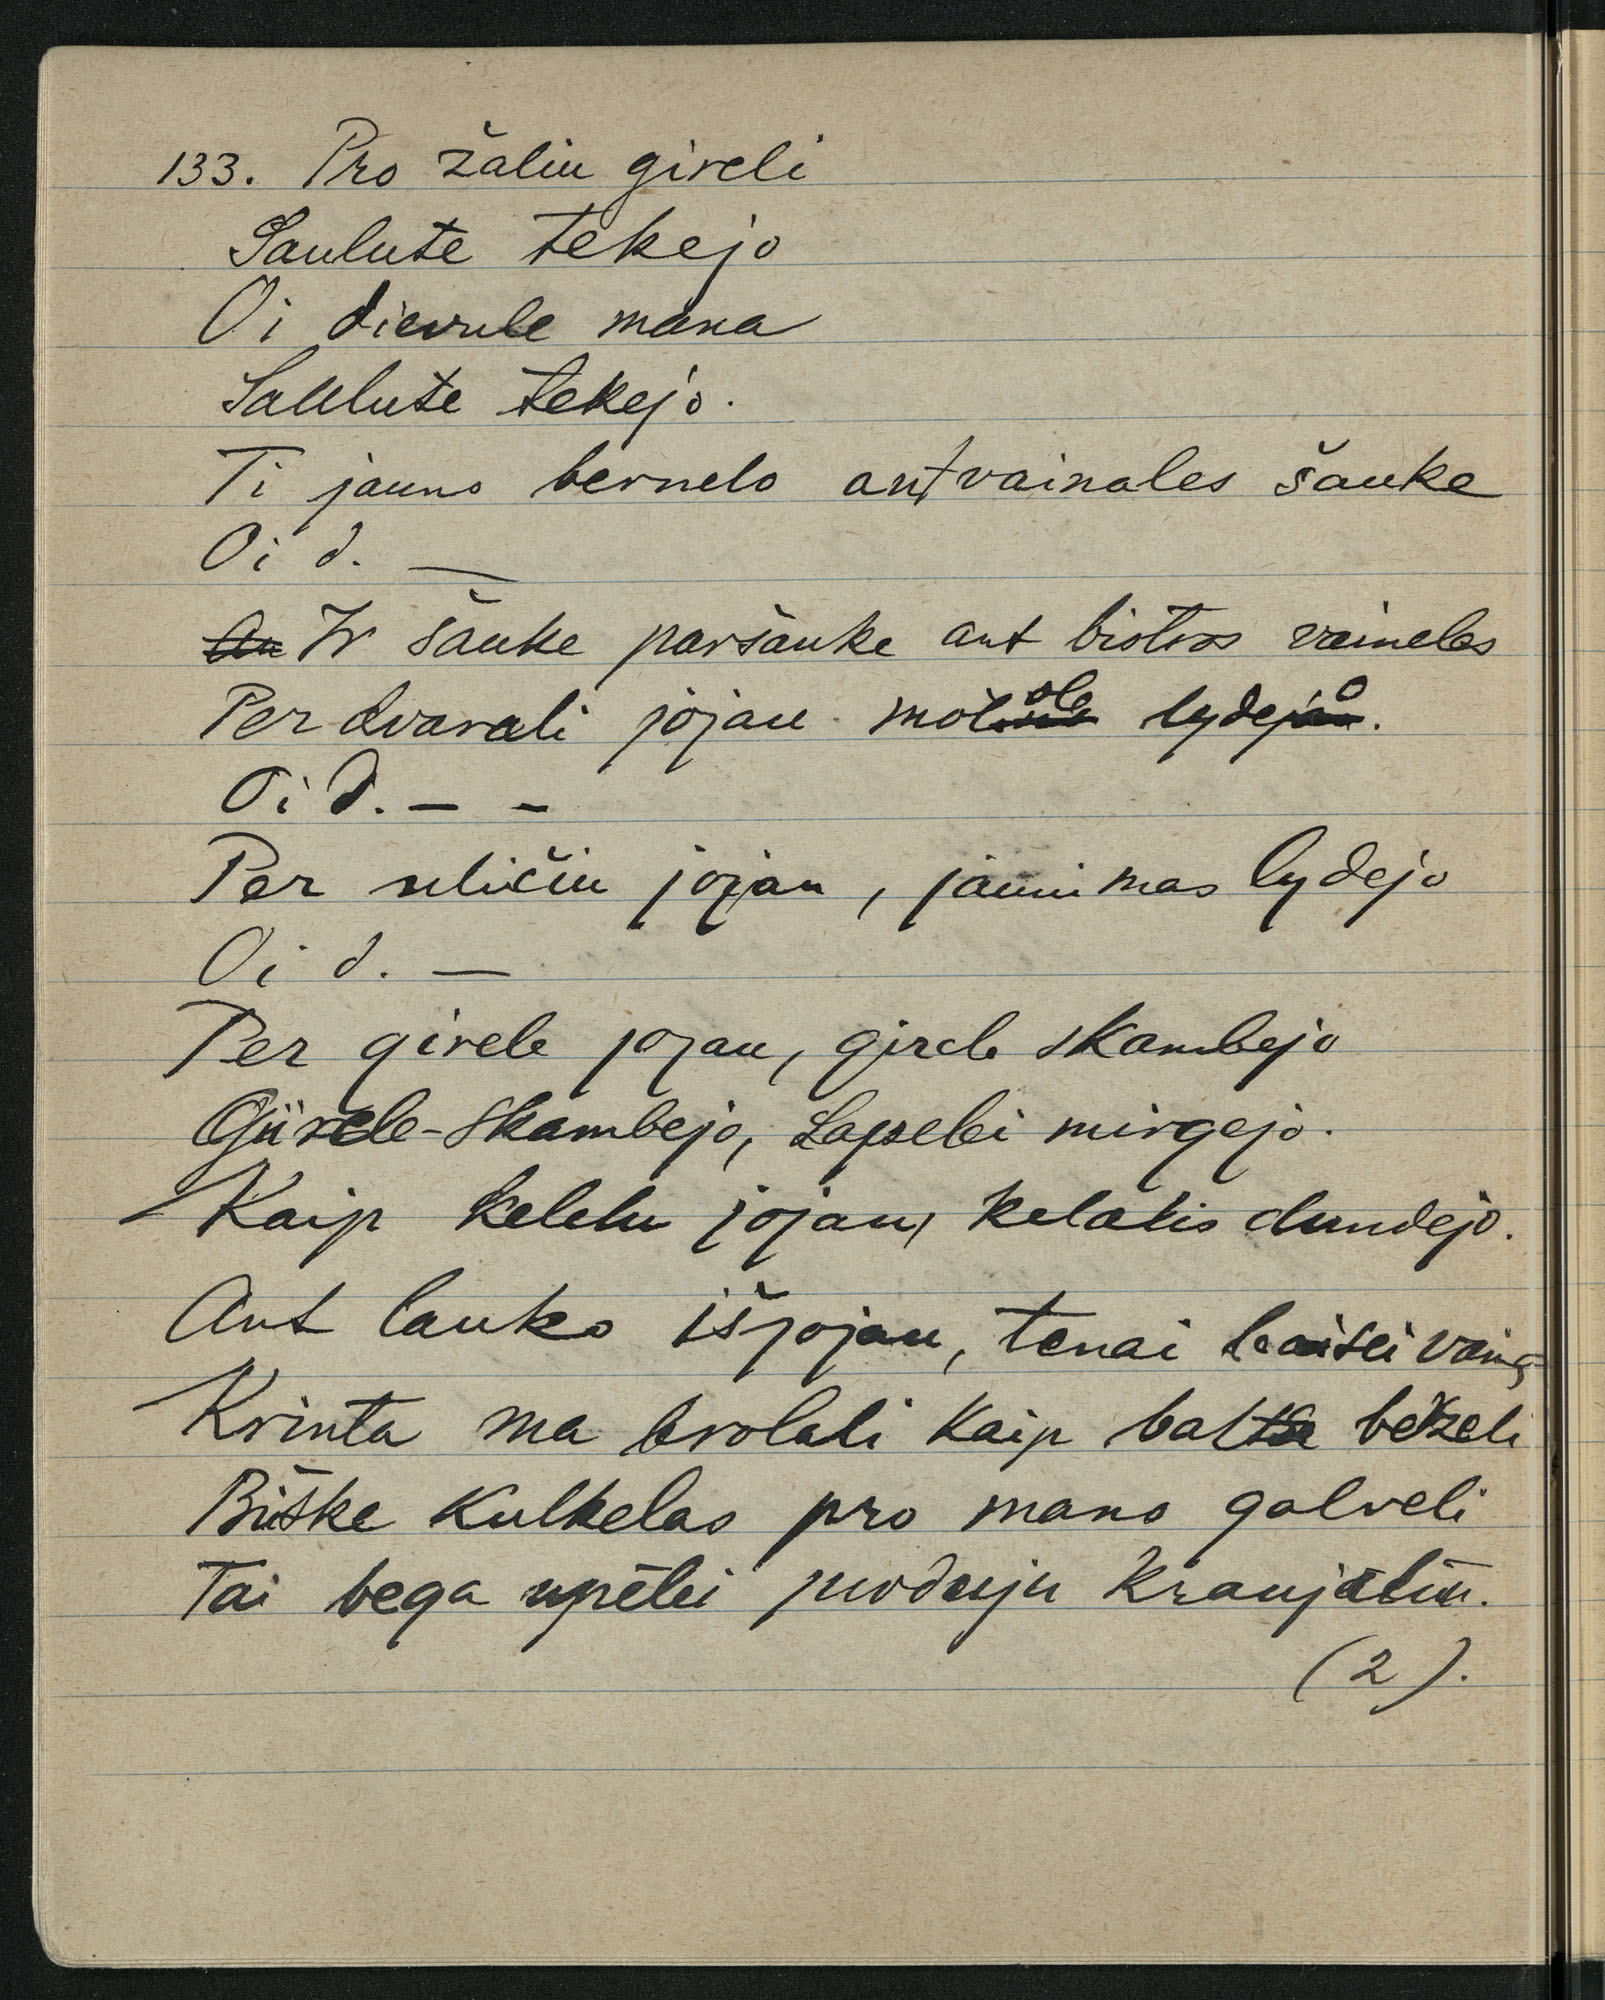 133. Pro žaliu gireli
Saulute tekejo
Oi dievule mana
Saulute tekejo.
Ti jauno bernelo ant vainales šauke
Oi d. —
Ir šauke paršauke ant biotvos vaineles
Per dvarali jojau motole lydejo.
Oi d. — –
Per uličiu jojau, jaunimas lydejo
Oi d. —
Per girele jojau, girele skambejo
Girele-skambejo, Lapelei mirgejo.
Kaip kelelu jojau, kelalis dundejo.
Ant lauko išjojau, tenai baisei vaina
Krinta ma brolali kaip balta bekeli
Biške kulkelas pro mano galveli
Tai bega upēlei juoduju kraujaliu.
(2).